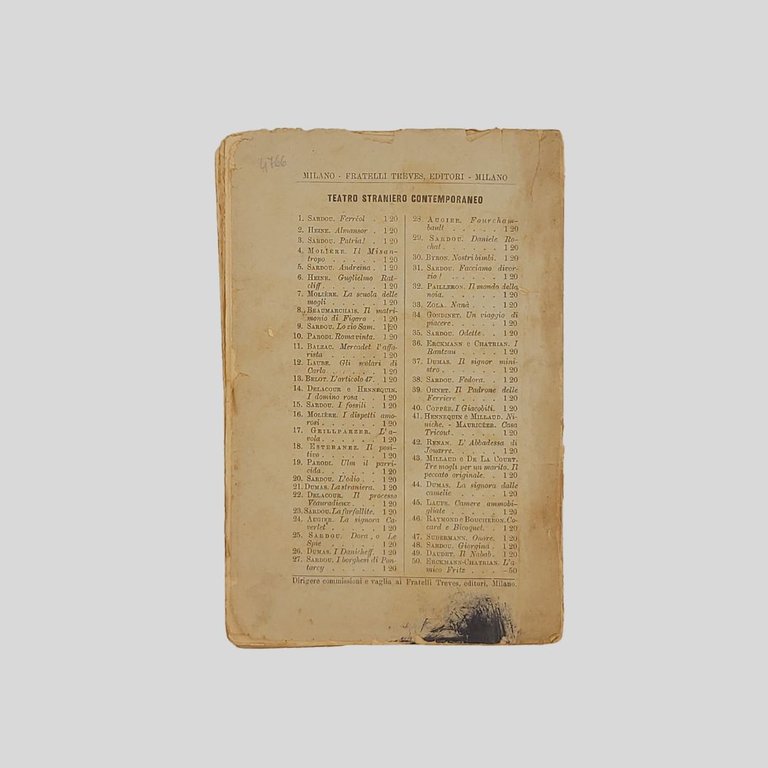 4766
MILANO - FRATELLI TREVES, EDITORI - MILANO
TEATRO STRANIERO CONTEMPORANEO
1. SARDOU. Ferréol . 1 20
2. HEINE. Almansor . 1 20
3. SARDOU. Patria! . 1 20
4. MOLIÈRE. Il Misan-
tropo . . . . . 1 20
5. SARDOU. Andreina . 1 20
6. HEINE. Guglielmo Rat-
cliff . . . . . . 1 20
7. MOLIÈRE. La scuola delle
mogli . . . . . 1 20
8. BEAUMARCHAIS. Il matri-
monio di Figaro . 1 20
9. SARDOU. Lo zio Sam. 1 20
10. PARODI. Roma vinta. 1 20
11. BALZAC. Mercadet l'affa-
rista . . . . . 1 20
12. LAUBE. Gli scolari di
Carlo . . . . . 1 20
13. BELOT. L'articolo 47. 1 20
14. DELACOUR e HENNEQUIN.
I domino rosa . . 1 20
15. SARDOU. I fossili . 1 20
16. MOLIÈRE. I dispetti amo-
rosi . . . . . . 1 20
17. GRILLPARZER. L'a-
vola . . . . . . 1 20
18. ESTEBANEZ. Il posi-
tivo . . . . . . 1 20
19. PARODI. Ulm il parri-
cida . . . . . . 1 20
20. SARDOU. L'odio . . 1 20
21. DUMAS. La straniera. 1 20
22. DELACOUR. Il processo
Veauradieux . . . 1 20
23. SARDOU. La farfallite. 1 20
24. AUGIER. La signora Ca-
verlet . . . . . 1 20
25. SARDOU. Dora, o Le
Spie . . . . . . 1 20
26. DUMAS. I Danicheff. 1 20
27. SARDOU. I borghesi di Pon-
tarcy . . . . . 1 20
28. AUGIER. Fourcham-
bault . . . . . 1 20
29. SARDOU. Daniele Ro-
chat . . . . . . 1 20
30. BYRON. Nostri bimbi. 1 20
31. SARDOU. Facciamo divor-
zio! . . . . . . 1 20
32. PAILLERON. Il mondo della
noia. . . . . . 1 20
33. ZOLA. Nanà . . . 1 20
34. GONDINET. Un viaggio di
piacere . . . . . 1 20
35. SARDOU. Odette. . . 1 20
36. ERCKMANN e CHATRIAN. I
Rantzau . . . . 1 20
37. DUMAS. Il signor mini-
stro . . . . . . 1 20
38. SARDOU. Fedora. . . 1 20
39. OHNET. Il Padrone delle
Ferriere . . . . 1 20
40. COPPÉE. I Giacobiti. 1 20
41. HENNEQUIN e MILLAUD. Ni-
niche. - MAURICÉER. Casa
Tricout. . . . . 1 20
42. RENAN. L'Abbadessa di
Jouarre. . . . . 1 20
43. MILLAUD e DE LA COURT.
Tre mogli per un marito. Il
peccato originale. . 1 20
44. DUMAS. La signora dalle
camelie . . . . 1 20
45. LAUFS. Camere ammobi-
gliate . . . . . 1 20
46. RAYMOND e BOUCHERON. Co-
card e Bicoquet. . 1 20
47. SUDERMANN. Onore. 1 20
48. SARDOU. Giorgina . 1 20
49. DAUDET. Il Nabab. . 1 20
50. ERCKMANN-CHATRIAN. L'a-
mico Fritz . . . — 50
Dirigere commissioni e vaglia ai Fratelli Treves, editori, Milano.